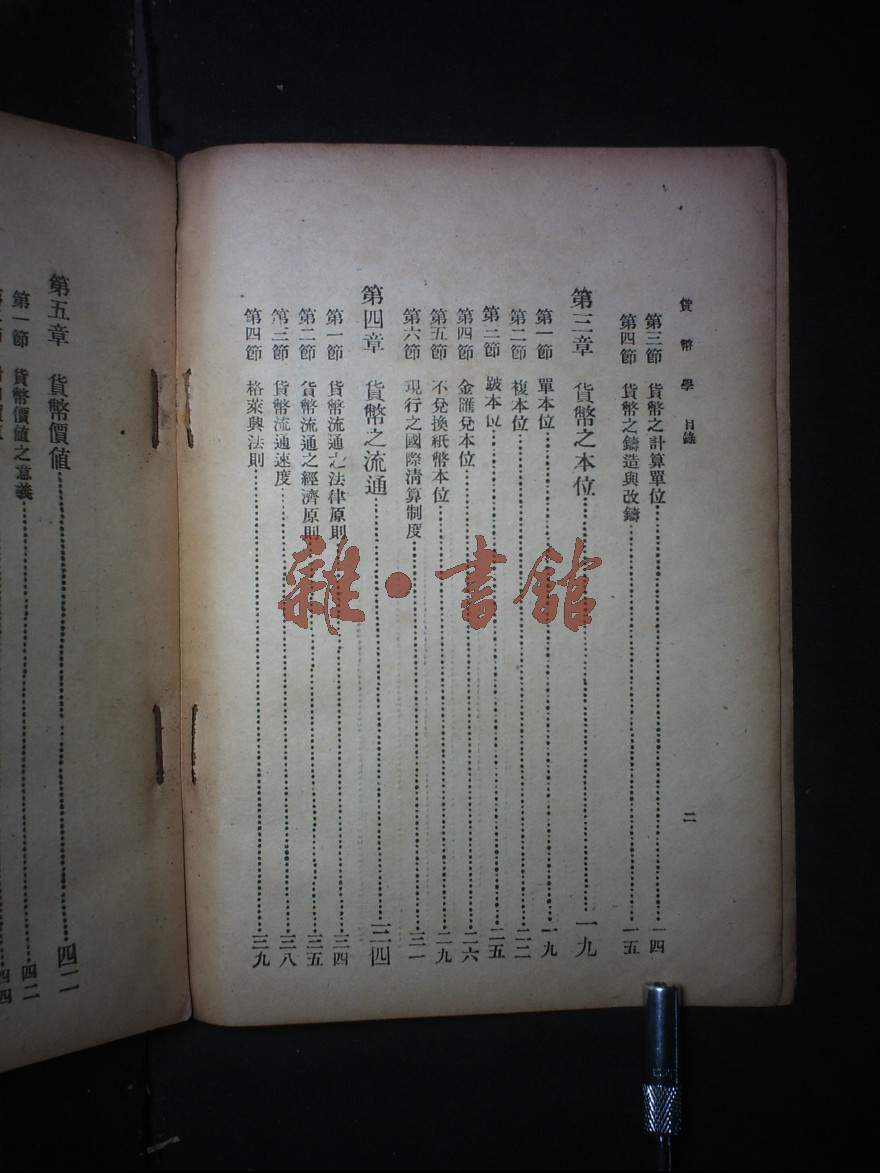 貨幣學 目錄 二
第三節 貨幣之計算單位 一四
第四節 貨幣之鑄造與改鑄 一五
第三章 貨幣之本位 一九
第一節 單本位 一九
第二節 複本位 二二
第三節 跛本位 二五
第四節 金匯兌本位 二六
第五節 不兌換紙幣本位 二九
第六節 現行之國際清算制度 三一
第四章 貨幣之流通 三四
第一節 貨幣流通之法律原則 三四
第二節 貨幣流通之經濟原則 三五
第三節 貨幣流通速度 三八
第四節 格萊興法則 三九
第五章 貨幣價值 四二
第一節 貨幣價值之意義 四二
四四
雜·書館